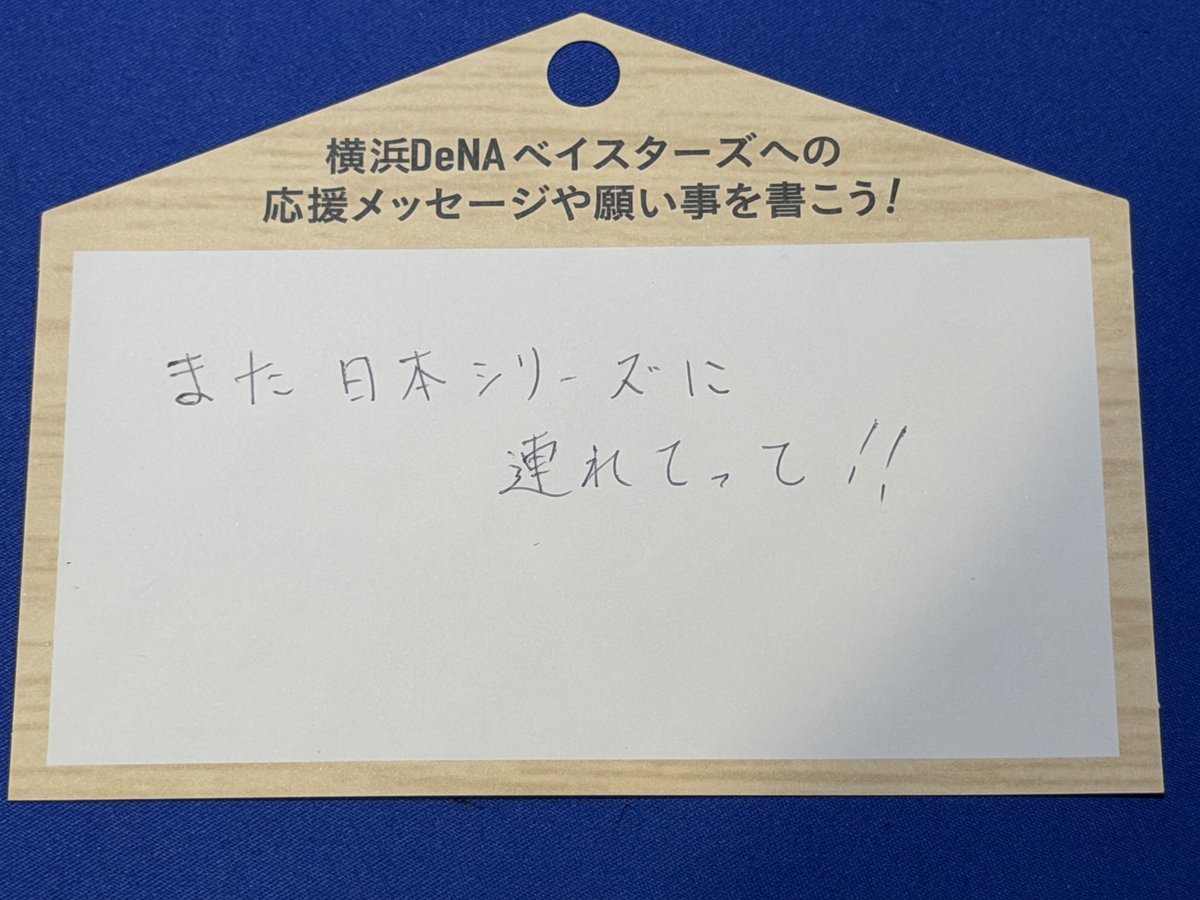 横浜DeNAベイスターズへの
応援メッセージや願い事を書こう!
また日本シリーズに
連れてって!!